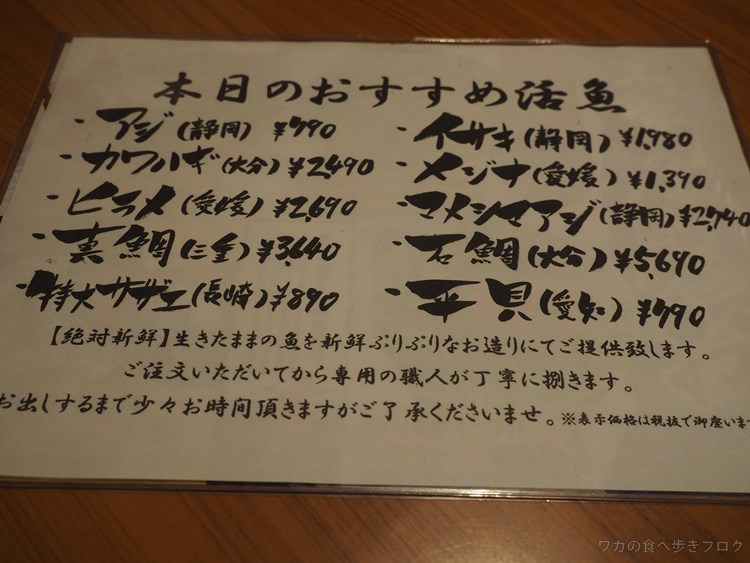 本日のおすすめ活魚
・アジ(静岡) ¥790
・カワハギ(大分) ¥2,490
・ヒラメ(愛媛) ¥2,690
・真鯛(三重) ¥3,640
・特大サザエ(長崎) ¥890
・イサキ(静岡) ¥1,980
・メジナ(愛媛) ¥1,390
・マメシマアジ(静岡) ¥2,740
・石鯛(大分) ¥5,690
・平貝(愛知) ¥790
【絶対新鮮】生きたままの魚を新鮮ぷりぷりなお造りにてご提供致します。
ご注文いただいてから専用の職人が丁寧に捌きます。
お出しするまで少々お時間頂きますがご了承くださいませ。※表示価格は税抜で御座います
ワカの食べ歩きブログ